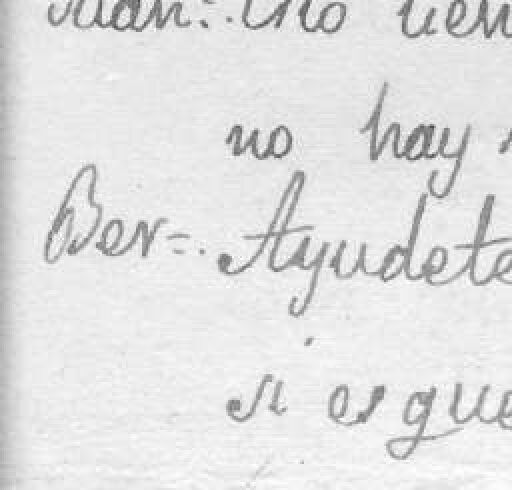 Juan=. No tien
no hay
Ber=. Ayudete
si es que